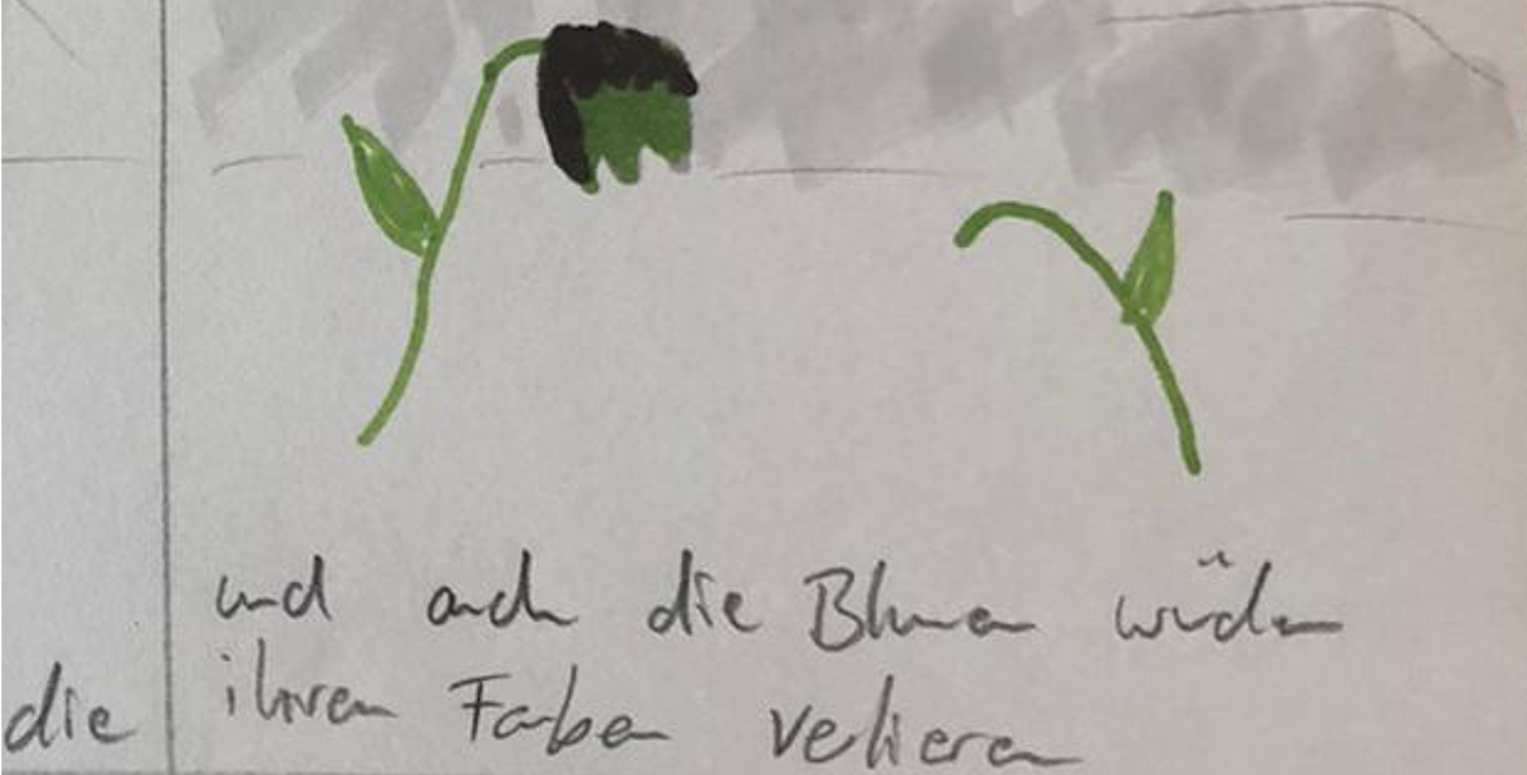 und auch die Blumen würden
die ihren Farben verlieren